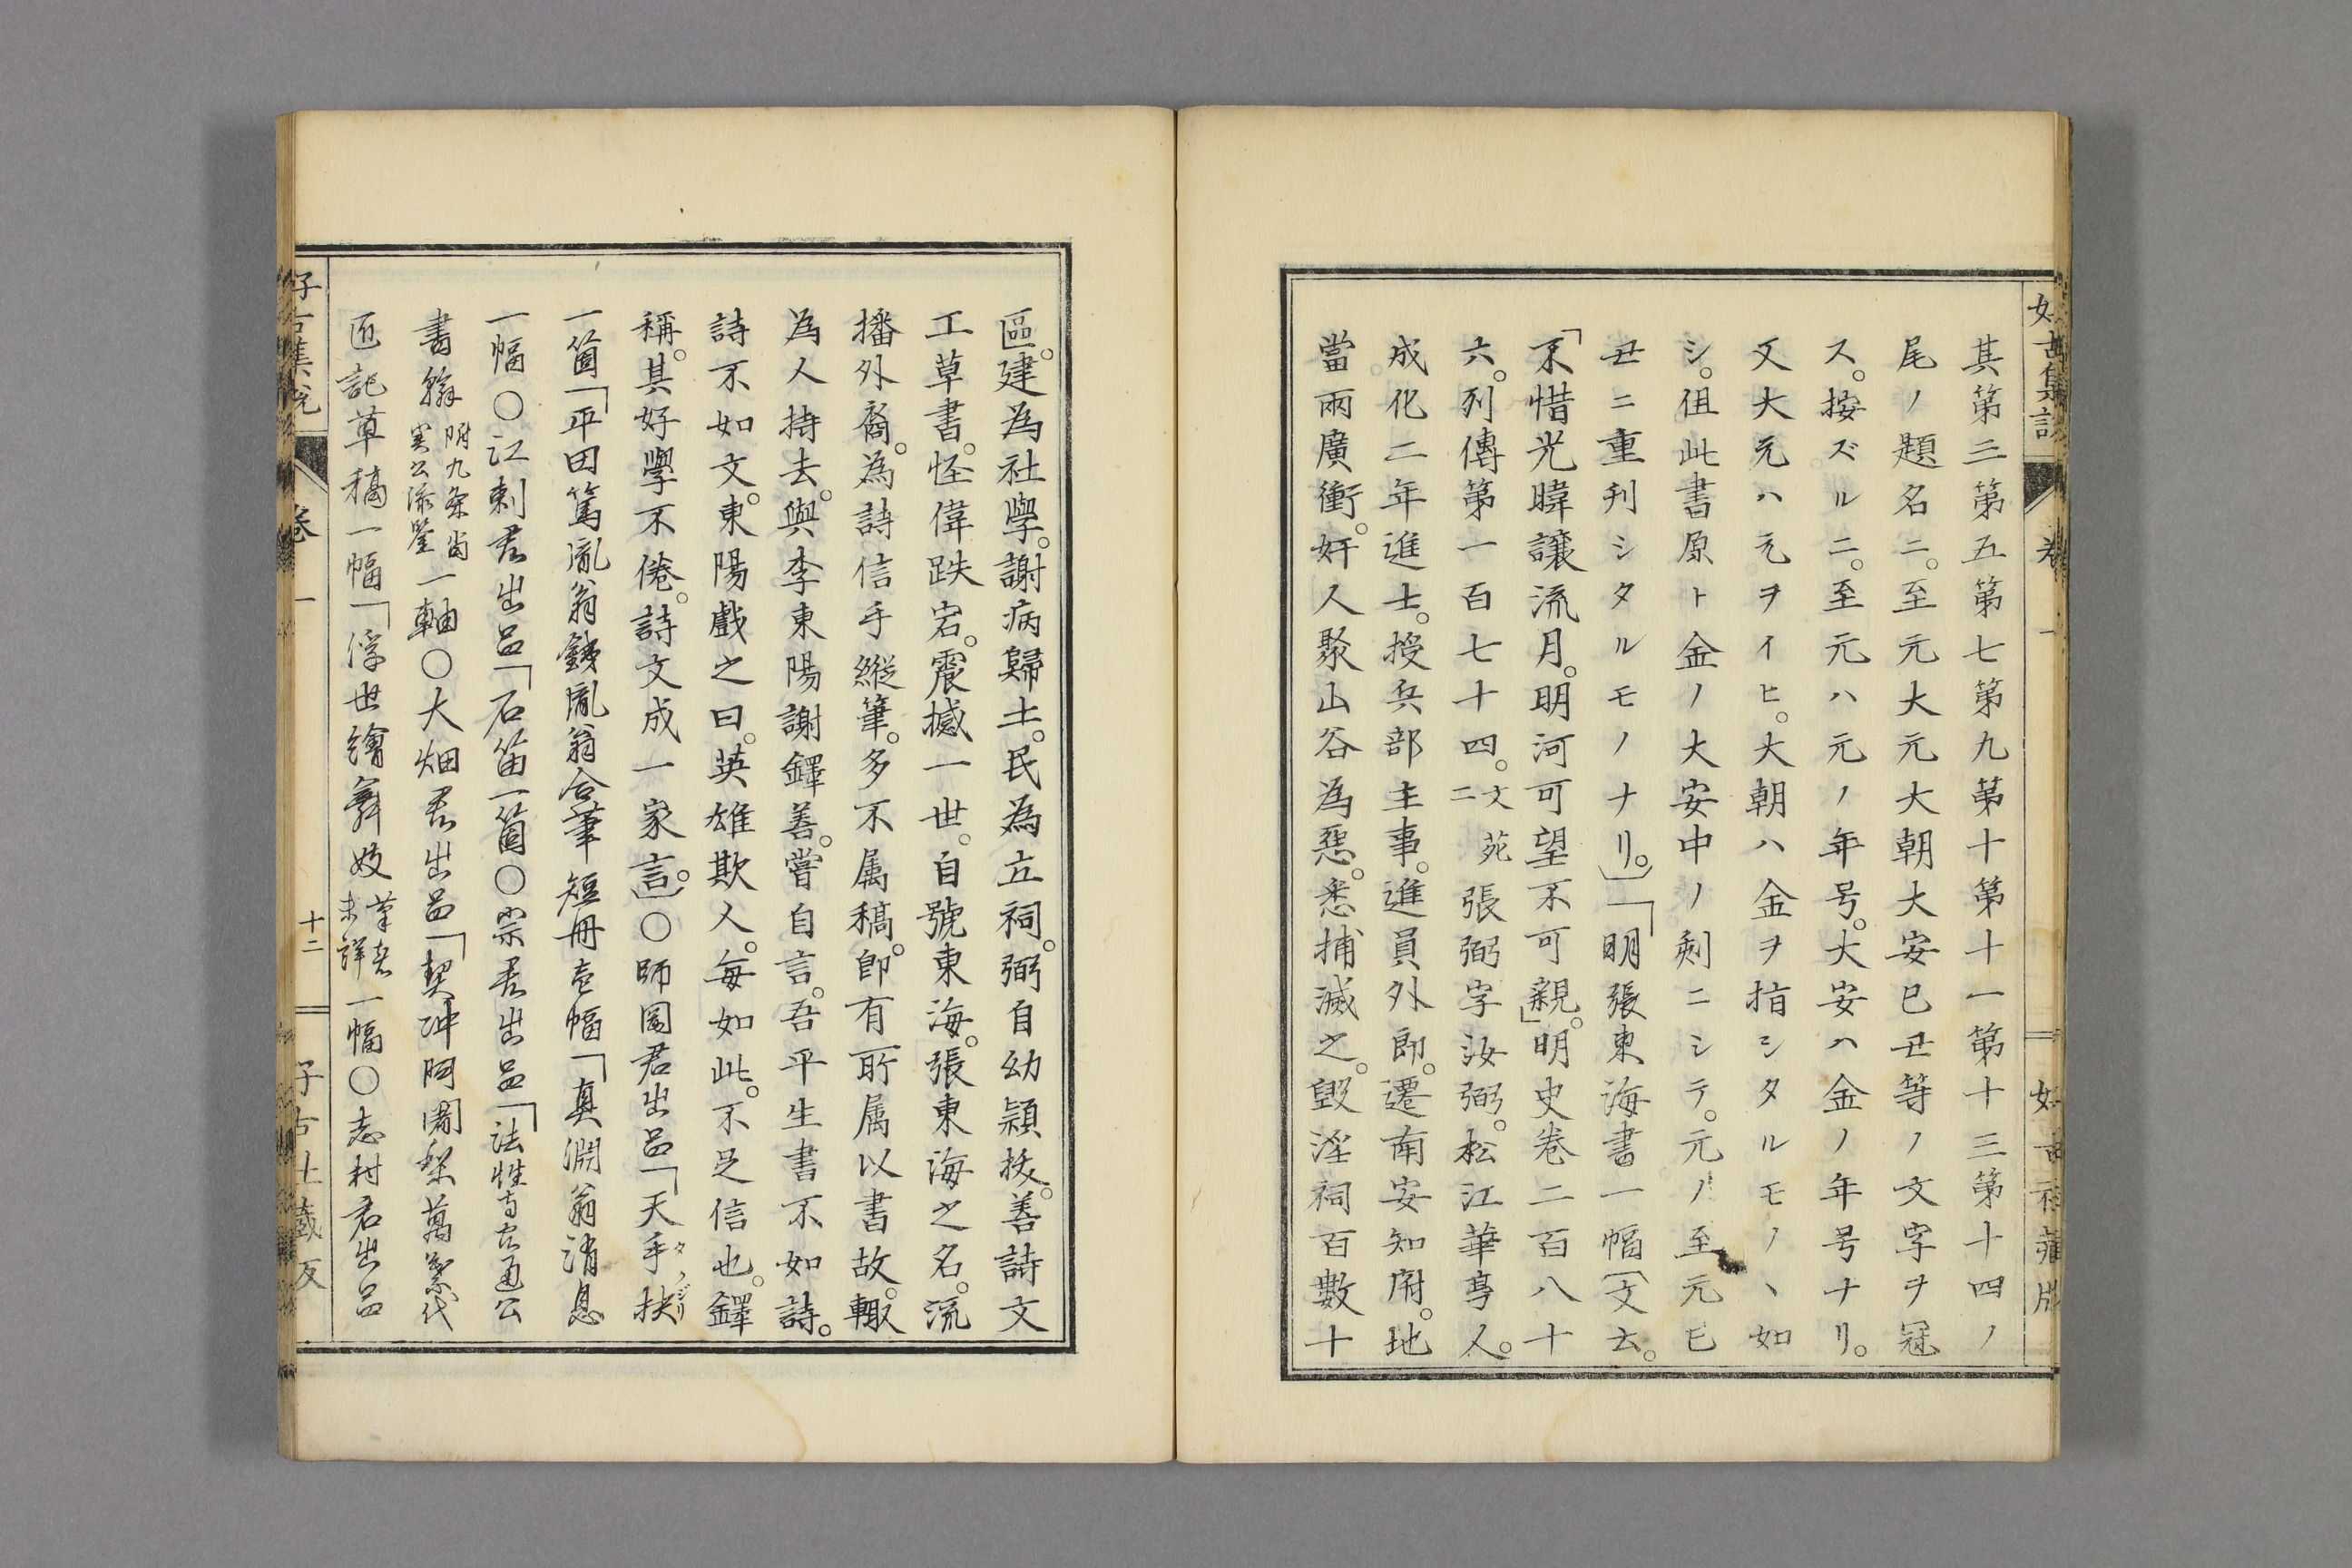 其第三第五第七第九第十第十一第十三第十四ノ
尾ノ題名ニ。至元大元大朝大安巳丑等ノ文字ヲ冠
ス。按ズルニ。至元ハ元ノ年号。大安ハ金ノ年号ナリ。
又大元ハ元ヲイヒ。大朝ハ金ヲ指シタルモノヽ如
シ。伹此書原ト金ノ大安中ノ刻ニシテ。元ノ至元巳
丑ニ重刊シタルモノナリ。)「明張東海書一幅(文云。
「不惜光暐讓流月。明河可望不可親。」明史巻二百八十
六。列傳第一百七十四。文苑二張弼字汝弼。松江華亭人。
成化二年進士。授兵部主事。進員外郎。遷南安知府。地
當兩廣衝。奸人聚山谷為惡。悉捕滅之。毀淫祠百數十
區。建為社學。謝病歸土。民為立祠。弼自幼頴拔。善詩文
工草書。怪偉跌宕。震撼一世。自號東海。張東海之名。流
播外裔。為詩信手縱筆。多不属稿。即有所属以書故。輙
為人持去。與李東陽謝鐸善。嘗自言。吾平生書不如詩。
詩不如文。東陽戲之曰。英雄欺人。毎如此。不足信也。鐸
稱。其好學不倦。詩文成一家言。)〇師岡君出品「天手抉タノジリ
一箇「平田篤胤翁銕胤翁合筆短冊壱幅「真淵翁消息
一幅〇江刺君出品「石笛一箇〇宗君出品「法性寺忠通公
書翰附九条尚実公添鑒一軸〇大畑君出品「契沖阿闍梨萬葉代
匠記草稿一幅「浮世繪舞妓筆者未詳一幅〇志村君出品
好古集説
巻一
十二
好古社蔵版